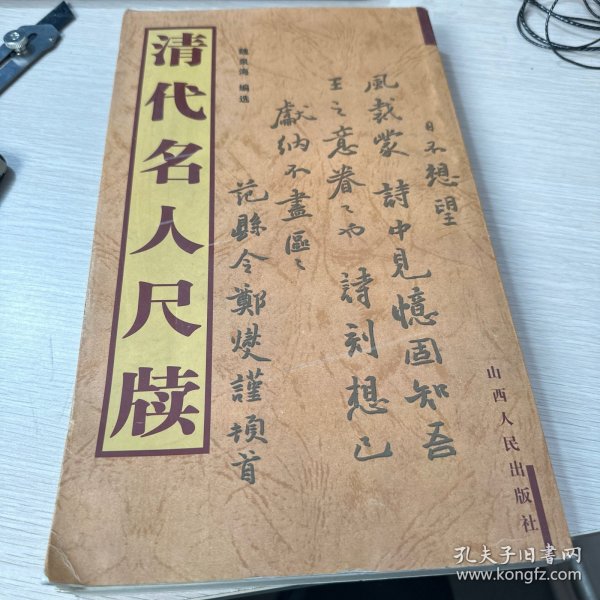 清代名人尺牍
魏泉海 编选
日不想望
風裁蒙詩中見憶固知吾
王之意眷〻也詩刻想已
獻納不盡區〻
范縣令鄭燮謹頓首
山西人民出版社
孔夫子旧书网
www.kongfz.com